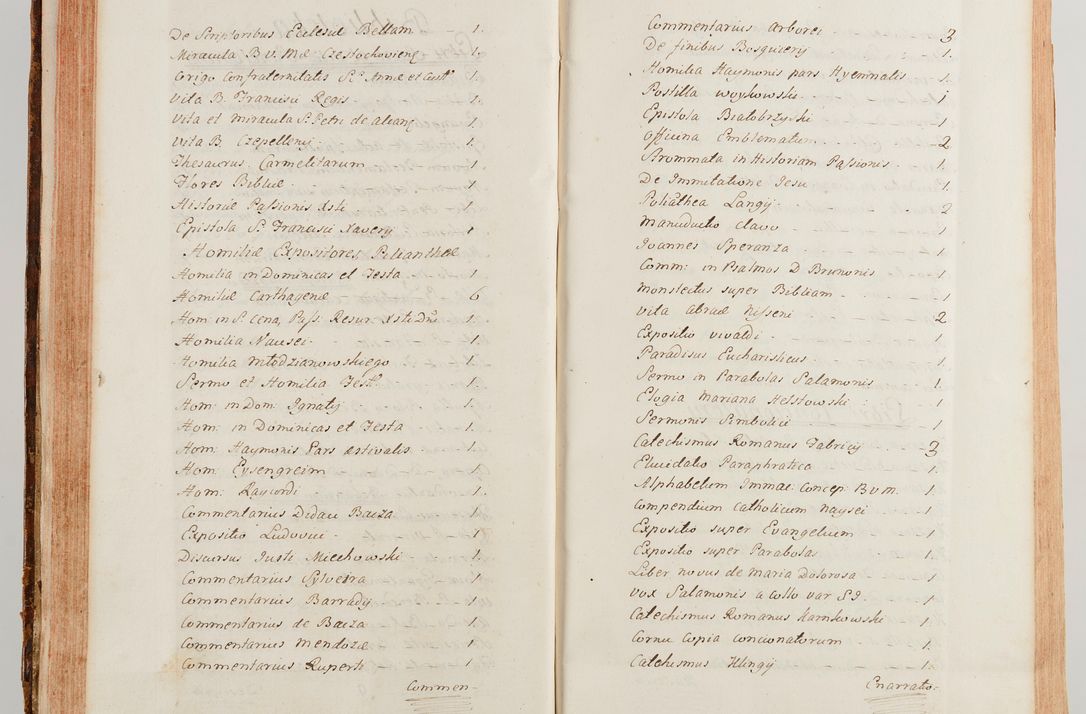 De Scriptoribus Eclesiæ Bellam - - 1.
Miracula B v. Mæ Częstochovienę - 1.
Corigo Confraternitatis S.ᵃ Annæ et Aut.ᵒ 1.
Vita B. Francisci Regis - - 1.
Vita et miracula S. Petri de alcanę - - 1.
Vita B. Czepellenij - - - 1.
Thesaurus Carmelitarum - - 1.
Flores Bibliæ - - - 1.
Historiæ Passionis Xsti - - 1
Epistola S. Francisci Xavery - 1
Homiliæ Expositores, Polianthæ
Homilia in Dominicas et Festa - - 1.
Homiliæ Carthagenæ - - 6
Hom: in S. Cena, Pass. Resur. Xsti Dni - 1.
Homilia Nausei - - - 1.
Homilia młodzianowskiego - - 1.
Sermo et Homilia Fest. - - 1.
Hom: in Dom: Ignatij - - 1.
Hom: in Dominicas et Festa - - 1.
Hom: Haymonis Pars æstivalis - 1.
Hom: Eysengreim - - 1.
Hom: - - 1.
Commentarius Didaci Baeza - - 1.
Expositio Ludovici - - - 1.
Discursus Justi Miechowski - 1.
Commentarius Sylveira - - 1.
Commentarius Barrady - - 1.
Commentarius de Baeza - - 1.
Commentarius Mendozæ - - 1.
Commentarius Ruperti - - 1.
Commen-
Commentarius Arborei - - - 3
De finibus Bosquiery - - 1.
Homilia Haymonis pars Hyemnalis - 1.
Postilla woykowski - - - 1
Epistola Białobrzyski - - 1
Officina Emblematum - - - 2
Strommata in Historiam Passionis - 1.
De Immitatione Iesu - - 1.
Poliäthea Langij - - - 2
Manuductio clavo - - 1
Joannes Speranza - - 1
Comm: in Psalmos D Brunonis - 1
Monstectus super Bibliam - - 1
Vita abraæ Nisseni - - 2
Expositio vivaldi - - 1
Paradisus Eucharisticus - - 1.
Sermo in Parabolas Salamonis 1.
Elogia Mariana Helstowski : 1
Sermonis Simbolici - - 1
Catechismus Romanus Fabricij - - 3
Elucidatio Paraphratica - - 1
Alphabetum Immac: Concep: B v m. 1.
Compendium Catholicum naysei - 1.
Expositio super Evangelium - - 1.
Expositio super Parabolas - - 1
Liber novus de Maria Dolorosa - - 1
Vox Salamonis a collo var - - 1
Catechismus Romanus Karnkowski - 1
Cornu Copia concionatorum - 1.
Catechismus Klingij - - 1.
Enarratio-